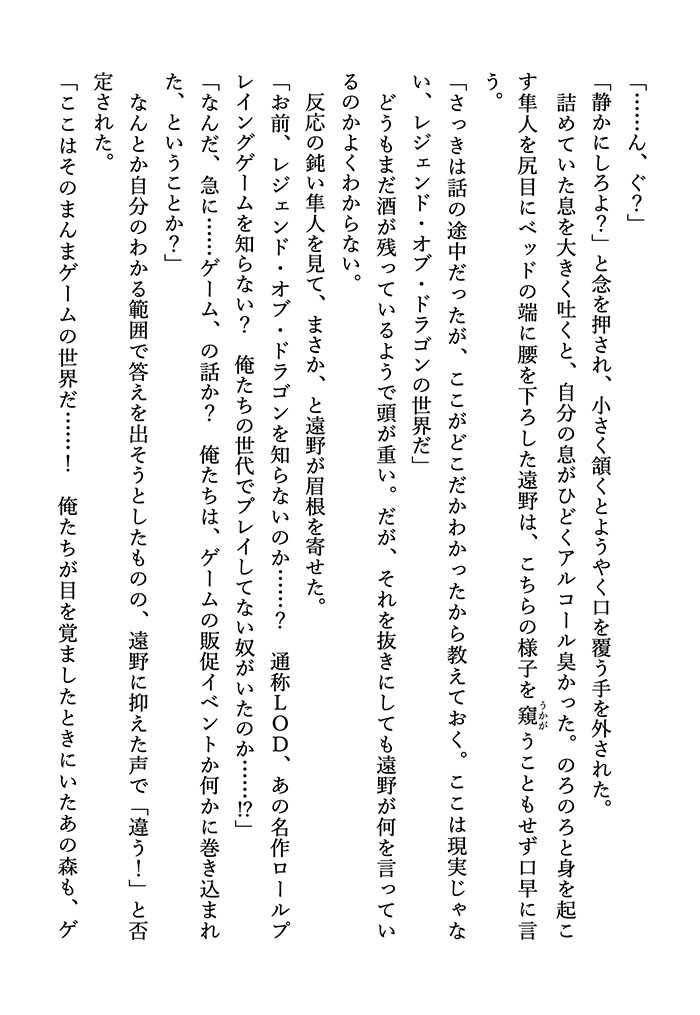 「……ん、ぐ？」
「静かにしろよ？」と念を押され、小さく頷くとようやく口を覆う手を外された。
　詰めていた息を大きく吐くと、自分の息がひどくアルコール臭かった。のろのろと身を起こ
す隼人を尻目にベッドの端に腰を下ろした遠野は、こちらの様子を窺うこともせず口早に言
うかが
う。
「さっきは話の途中だったが、ここがどこだかわかったから教えておく。ここは現実じゃな
い、レジェンド・オブ・ドラゴンの世界だ」
　どうもまだ酒が残っているようで頭が重い。だが、それを抜きにしても遠野が何を言ってい
るのかよくわからない。
　反応の鈍い隼人を見て、まさか、と遠野が眉根を寄せた。
「お前、レジェンド・オブ・ドラゴンを知らないのか……？　通称ＬＯＤ、あの名作ロールプ
レイングゲームを知らない？　俺たちの世代でプレイしてない奴がいたのか……⁉」
「なんだ、急に……ゲーム、の話か？　俺たちは、ゲームの販促イベントか何かに巻き込まれ
た、ということか？」
　なんとか自分のわかる範囲で答えを出そうとしたものの、遠野に抑えた声で「違う！」と否
定された。
「ここはそのまんまゲームの世界だ……！　俺たちが目を覚ましたときにいたあの森も、ゲ